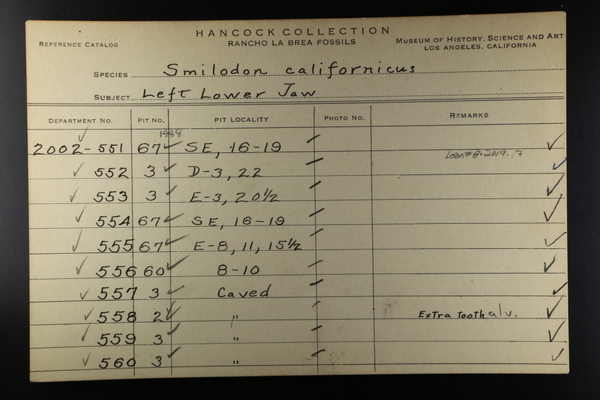 HANCOCK COLLECTION
REFERENCE CATALOG RANCHO LA BREA FOSSILS MUSEUM OF HISTORY, SCIENCE AND ART
LOS ANGELES, CALIFORNIA
SPECIES Smilodon californicus
SUBJECT Left Lower Jaw
DEPARTMENT NO. PIT NO. PIT LOCALITY PHOTO NO. REMARKS
1988
2002-551 67 SE, 16-19
Loan#8-2019.
552 3 D-3, 22
553 3 E-3, 20½
554 67 SE, 16-19
555 67 E-8, 11, 15½
556 60 8-10
557 3 Caved
558 2 " Extra tooth alv.
559 3 "
560 3 "